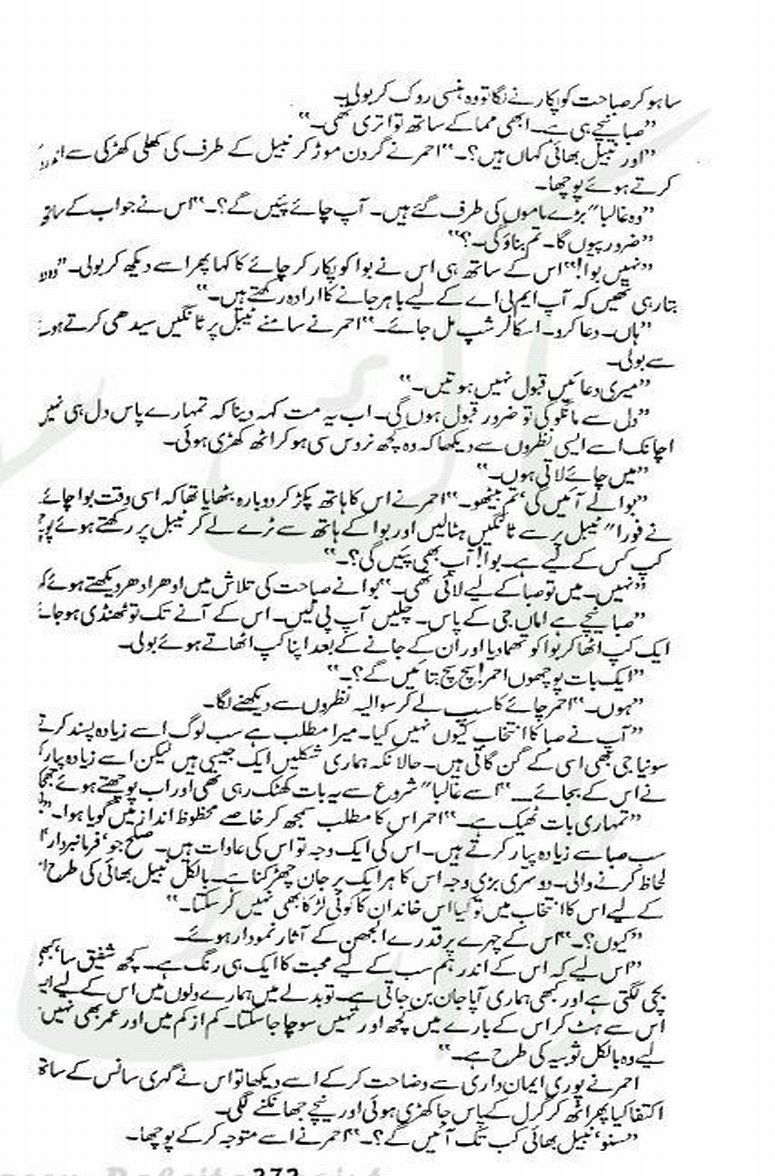 سا ہو کر صباحت کو پکارنے لگا تو وہ ہنسی روک کر بولی۔
”صبا نیچے ہی ہے۔ ابھی مما کے ساتھ تو اتری تھی۔“
”اور نبیل بھائی کہاں ہیں؟۔“ احمر نے گردن موڑ کر نبیل کے طرف کی کھلی کھڑکی سے
کرتے ہوئے پوچھا۔
”وہ غالباً بڑے ماموں کی طرف گئے ہیں۔ آپ چائے پئیں گے؟۔“ اس نے جواب کے ساتھ
”ضرور پیوں گا۔ تم بناؤ گی۔؟“
”نہیں بوا!“ اس کے ساتھ ہی اس نے بوا کو پکار کر چائے کا کہا پھر اسے دیکھ کر بولی۔
بتا رہی تھیں کہ آپ ایم بی اے کے لیے باہر جانے کا ارادہ رکھتے ہیں۔“
”ہاں۔ دعا کرو۔ اسکالر شپ مل جائے۔“ احمر نے سامنے ٹیبل پر ٹانگیں سیدھی کرتے
سے بولی۔
”میری دعائیں قبول نہیں ہوتیں۔“
”دل سے مانگو گی تو ضرور قبول ہوں گی۔ اب یہ مت کہہ دینا کہ تمہارے پاس دل ہی نہیں
اچانک اسے ایسی نظروں سے دیکھا کہ وہ کچھ نروس سی ہو کر اٹھ کھڑی ہوئی۔
”میں چائے لاتی ہوں۔“
”بوا لے آئیں گی، تم بیٹھو۔“ احمر نے اس کا ہاتھ پکڑ کر دوبارہ بٹھایا تھا کہ اسی وقت بوا چائے
نے فوراً ٹیبل پر سے ٹانگیں ہٹالیں اور بوا کے ہاتھ سے ٹرے لے کر ٹیبل پر رکھتے ہوئے
کپ کس کے لیے ہے۔ بوا! آپ بھی پئیں گی؟۔“
”نہیں۔ میں تو صبا کے لیے لائی تھی۔“ بوا نے صباحت کی تلاش میں ادھر ادھر دیکھتے ہوئے
”صبا نیچے ہے اماں جی کے پاس۔ چلیں آپ پی لیں۔ اس کے آنے تک تو ٹھنڈی ہو جائے
ایک کپ اٹھا کر بوا کو تھما دیا اور ان کے جانے کے بعد اپنا کپ اٹھاتے ہوئے بولی۔
”ایک بات پوچھوں احمر! سچ سچ بتائیں گے؟۔“
”ہوں۔“ احمر چائے کا سپ لے کر سوالیہ نظروں سے دیکھنے لگا۔
”آپ نے صبا کا انتخاب کیوں نہیں کیا۔ میرا مطلب ہے سب لوگ اسے زیادہ پسند کرتے
سونیا جی بھی اسی کے گن گاتی ہیں۔ حالانکہ ہماری شکلیں ایک جیسی ہیں لیکن اسے زیادہ پیار
نے اس کے بجائے۔۔۔“ اسے غالباً شروع سے یہ بات کھٹک رہی تھی اور اب پوچھتے ہوئے
”تمہاری بات ٹھیک ہے۔“ احمر اس کا مطلب سمجھ کر خاصے محظوظ انداز میں گویا ہوا۔
سب صبا سے زیادہ پیار کرتے ہیں۔ اس کی ایک وجہ تو اس کی عادات ہیں۔ صلح جو، فرمانبردار،
لحاظ کرنے والی۔ دوسری بڑی وجہ اس کا ہر ایک پر جان چھڑکنا ہے۔ بالکل نبیل بھائی کی طرح
کے لیے اس کا انتخاب میں تو کیا اس خاندان کا کوئی لڑکا بھی نہیں کر سکتا۔“
”کیوں؟۔“ اس کے چہرے پر قدرے الجھن کے آثار نمودار ہوئے۔
”اس لیے کہ اس کے اندر ہم سب کے لیے محبت کا ایک ہی رنگ ہے۔ کچھ شفیق سا، کبھی
بچی لگتی ہے اور کبھی ہماری آپا جان بن جاتی ہے۔ تو بدلے میں ہمارے دلوں میں اس کے لیے
اس سے ہٹ کر اس کے بارے میں کچھ اور نہیں سوچا جا سکتا۔ کم از کم میں اور عمر بھی نہیں
لیے وہ بالکل ثوبیہ کی طرح ہے۔“
احمر نے پوری ایمان داری سے وضاحت کر کے اسے دیکھا تو اس نے گہری سانس کے ساتھ
اکتفا کیا پھر اٹھ کر گرل کے پاس جا کھڑی ہوئی اور نیچے جھانکنے لگی۔
”سنو، نبیل بھائی کب تک آئیں گے؟۔“ احمر نے اسے متوجہ کر کے پوچھا۔
272